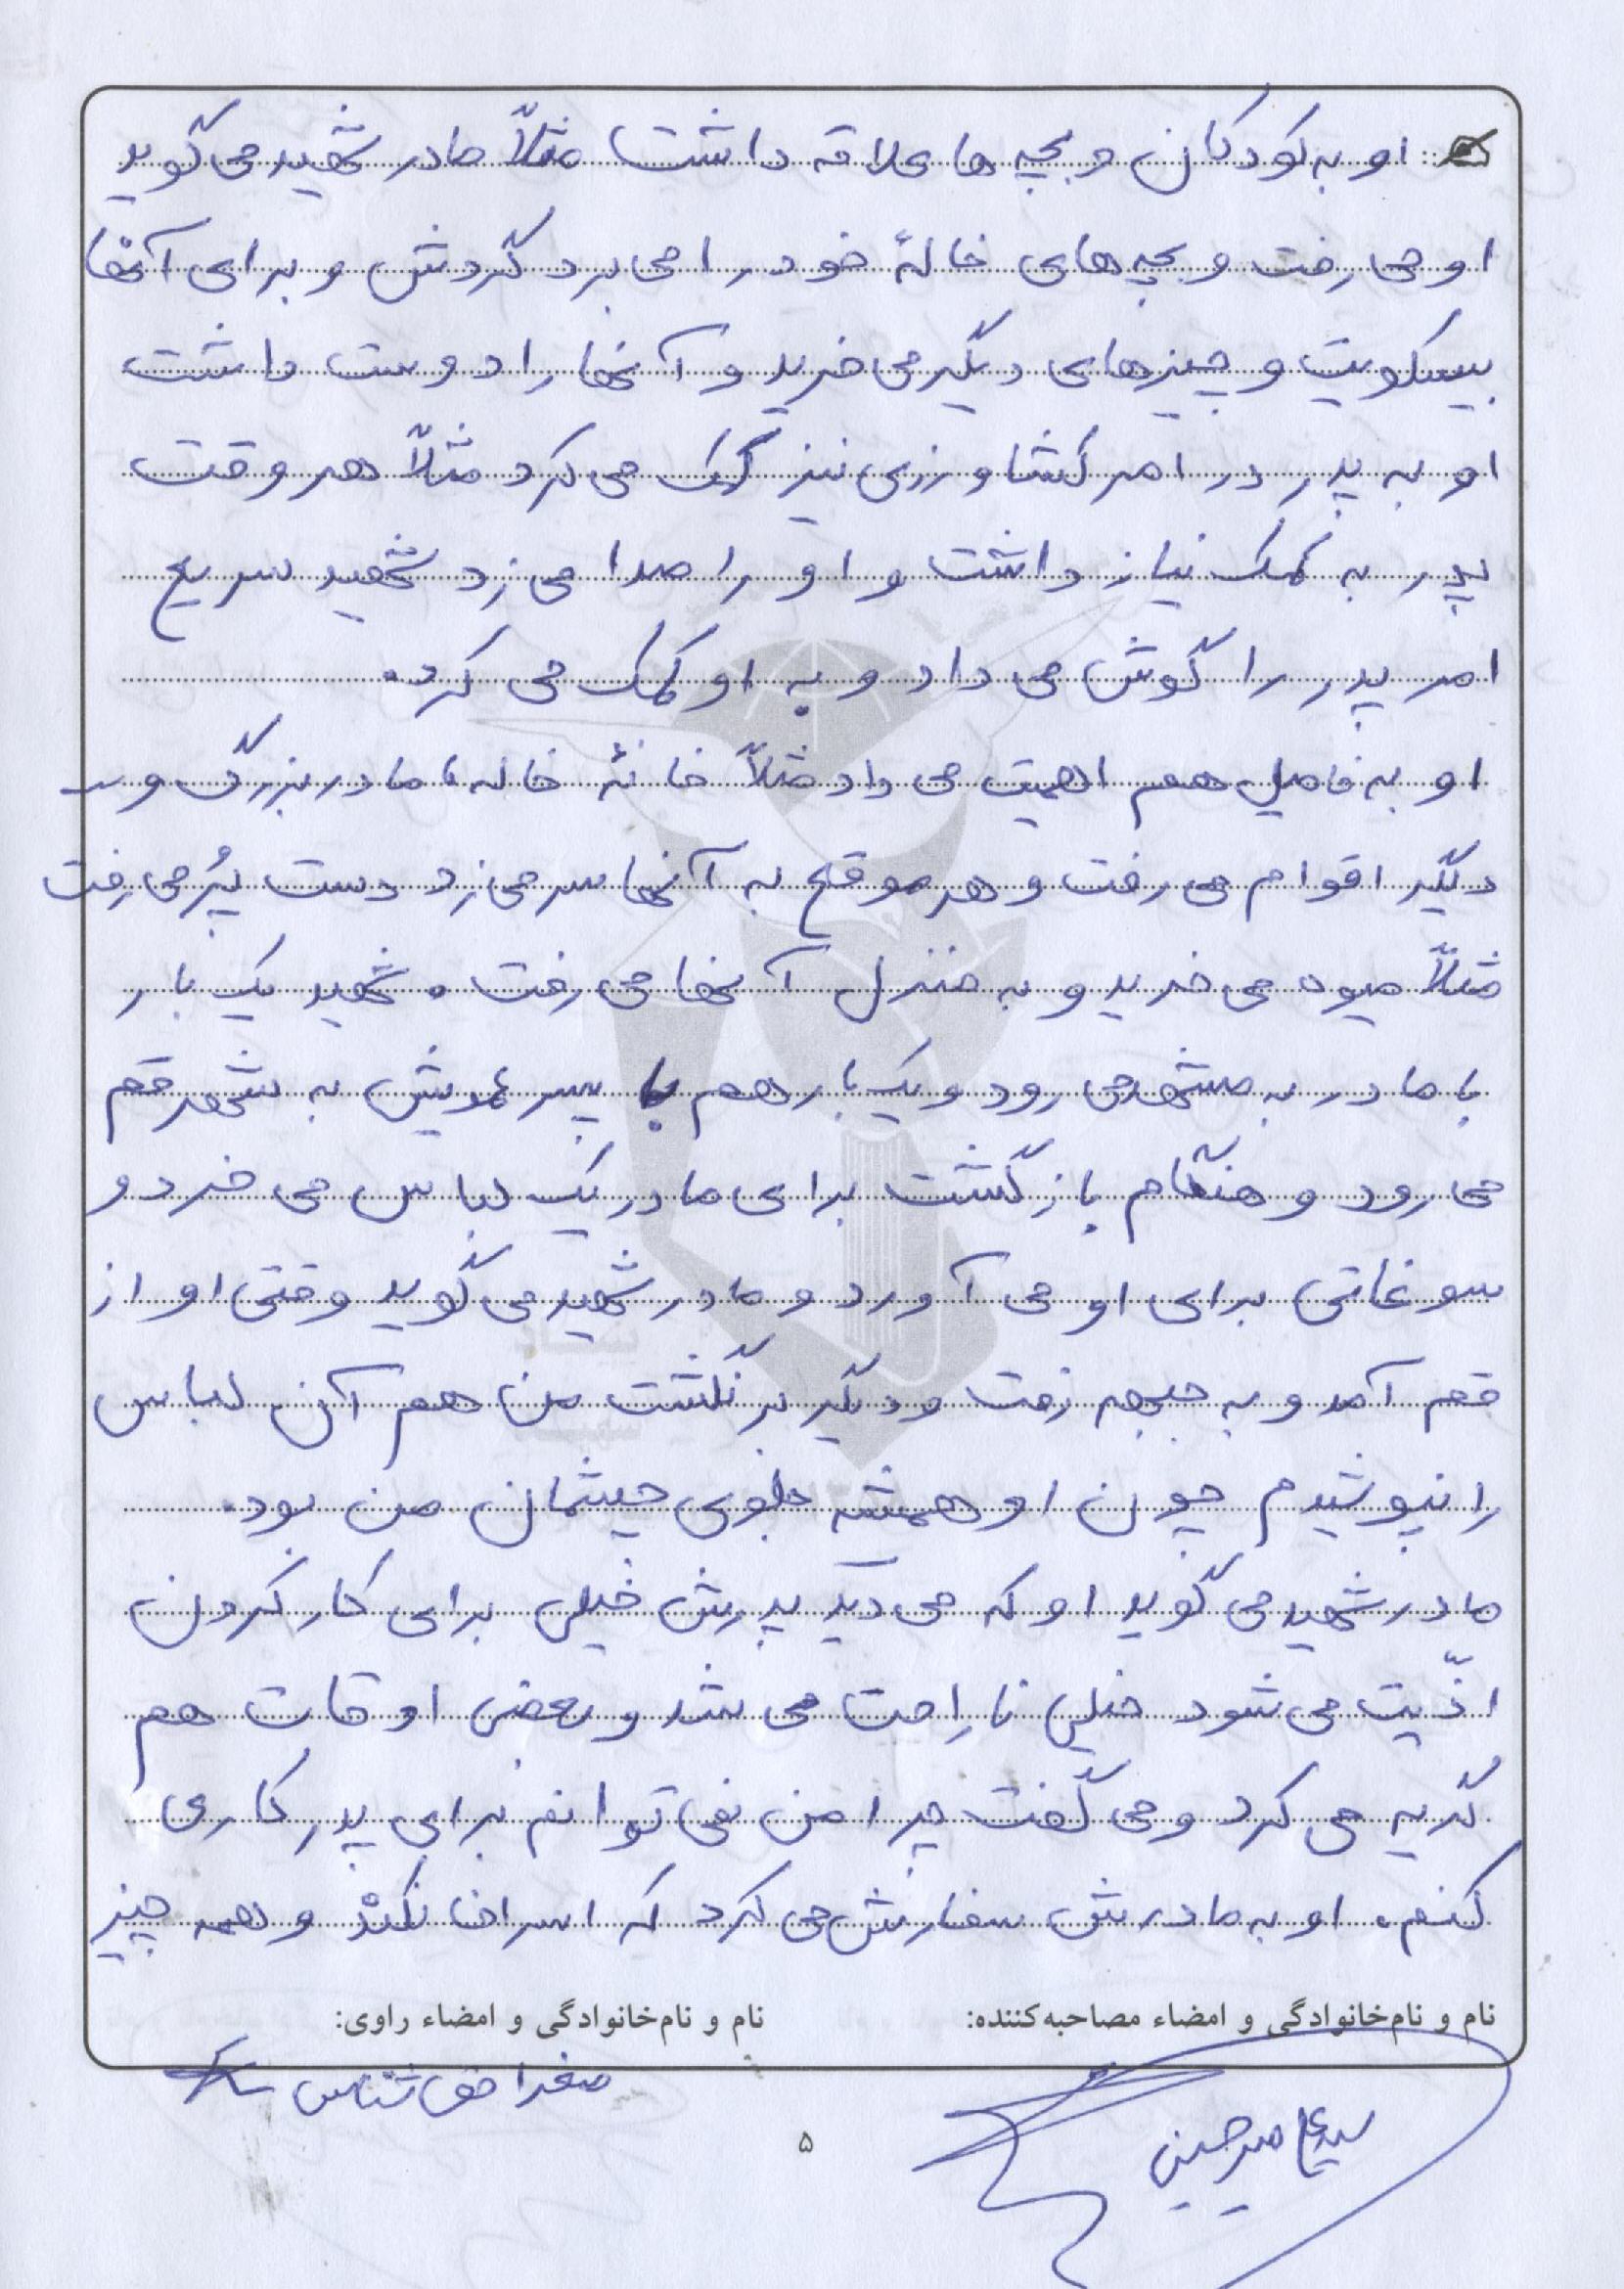 او به کودکان و بچه ها علاقه داشت مثلاً مادر شهید می گوید
او می رفت و بچه های خالهٔ خود را می برد گردش و برای آنها
بیسکویت و چیزهای دیگر می خرید و آنها را دوست داشت
او به پدر در امر کشاورزی نیز کمک می کرد مثلاً هر وقت
پدر به کمک نیاز داشت و او را صدا می زد شهید سریع
امر پدر را گوش می داد و به او کمک می کرد.
او به فامیل هم اهمیت می داد مثلاً خانهٔ خاله، مادربزرگ و
دیگر اقوام می رفت و هر موقع به آنها سر می زد دست پُر می رفت
مثلاً میوه می خرید و به منزل آنها می رفت. شهید یک بار
با مادر به مشهد می رود و یک بار هم با پسر عمویش به شهر قم
می رود و هنگام بازگشت برای مادر یک لباس می خرد و
سوغاتی برای او می آورد و مادر شهید می گوید وقتی او از
قم آمد و به جبهه رفت و دیگر برنگشت من هم آن لباس
را نپوشیدم چون او همیشه جلوی چشمان من بود.
مادر شهید می گوید او که می دید پدرش خیلی برای کار کردن
اذّیت می شود خیلی ناراحت می شد و بعضی اوقات هم
گریه می کرد و می گفت چرا من نمی توانم برای پدر کاری
کنم. او به مادرش سفارش می کرد که اسراف نکند و همه چیز
نام و نام‌خانوادگی و امضاء مصاحبه‌کننده: نام و نام‌خانوادگی و امضاء راوی:
صغرا حق شناس
میرحسینی
۵